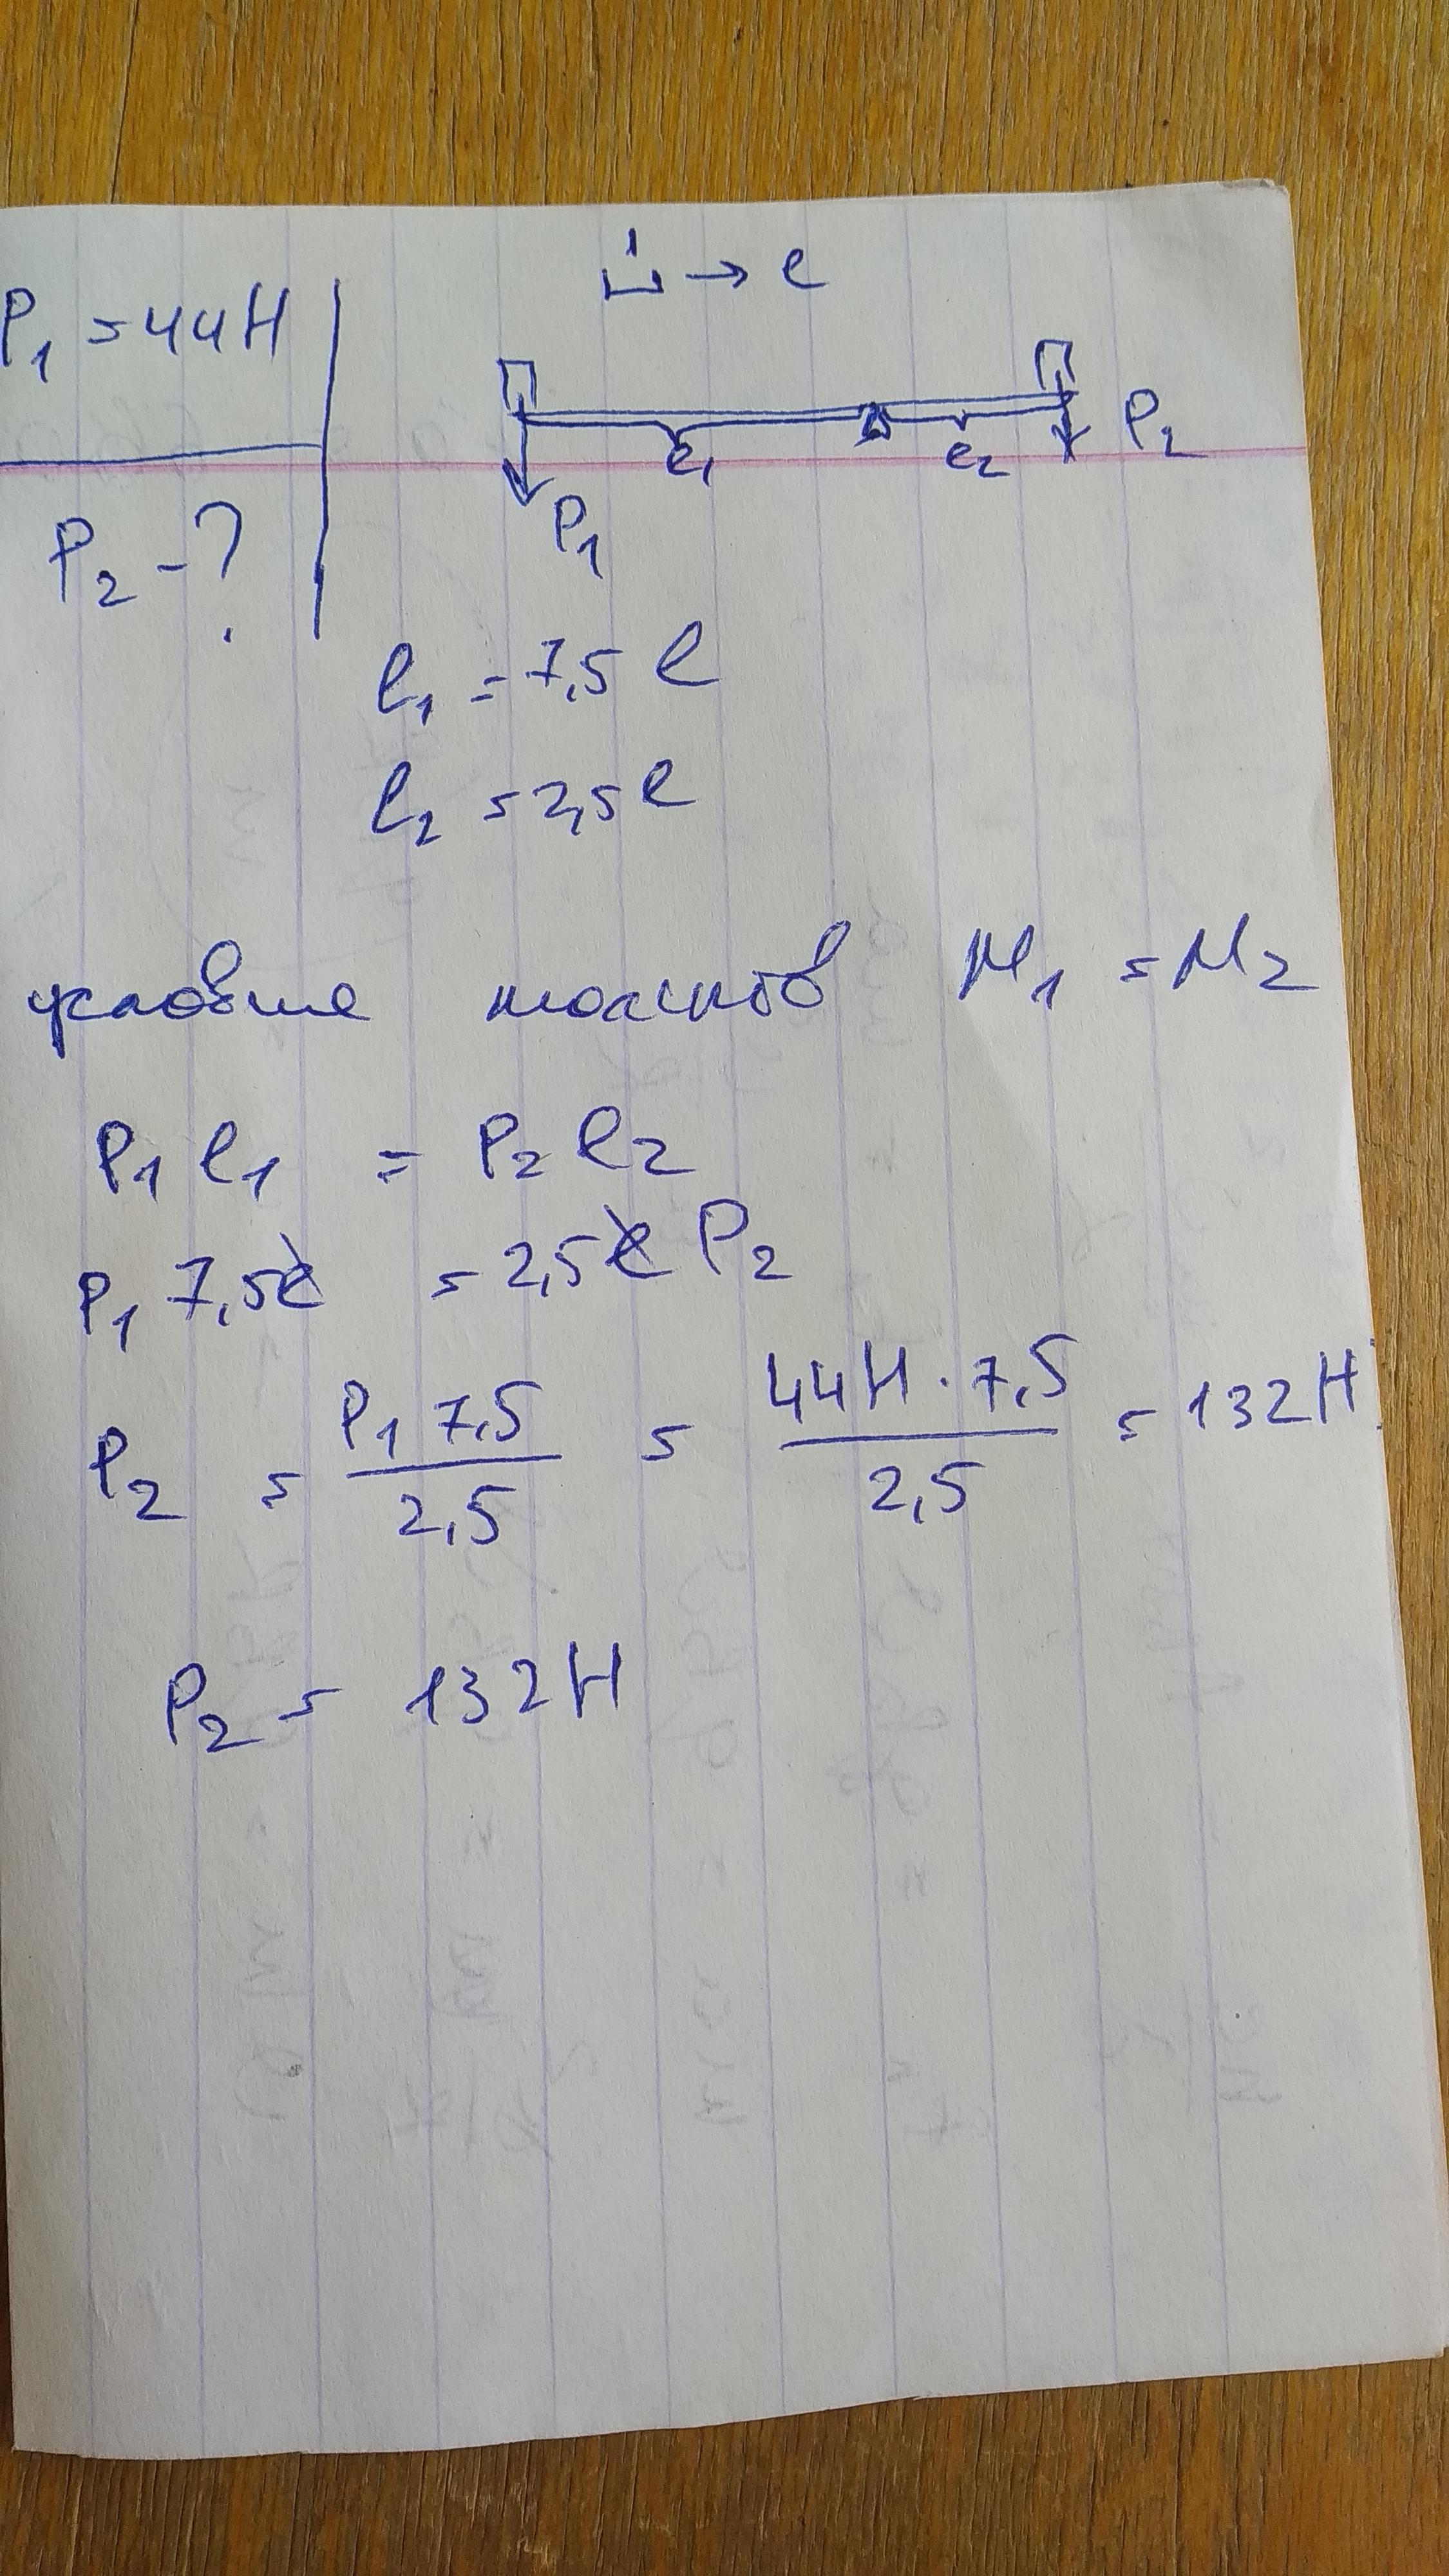 P₁ = 44Н
P₂ - ?
→ l
l₁
l₂
P₂
P₁
l₁ = 7,5 l
l₂ = 2,5 l
условие моментов M₁ = M₂
P₁ l₁ = P₂ l₂
P₁ 7,5l = 2,5l P₂
P₂ = P₁ 7,5 / 2,5 = 44Н · 7,5 / 2,5 = 132Н
P₂ = 132Н